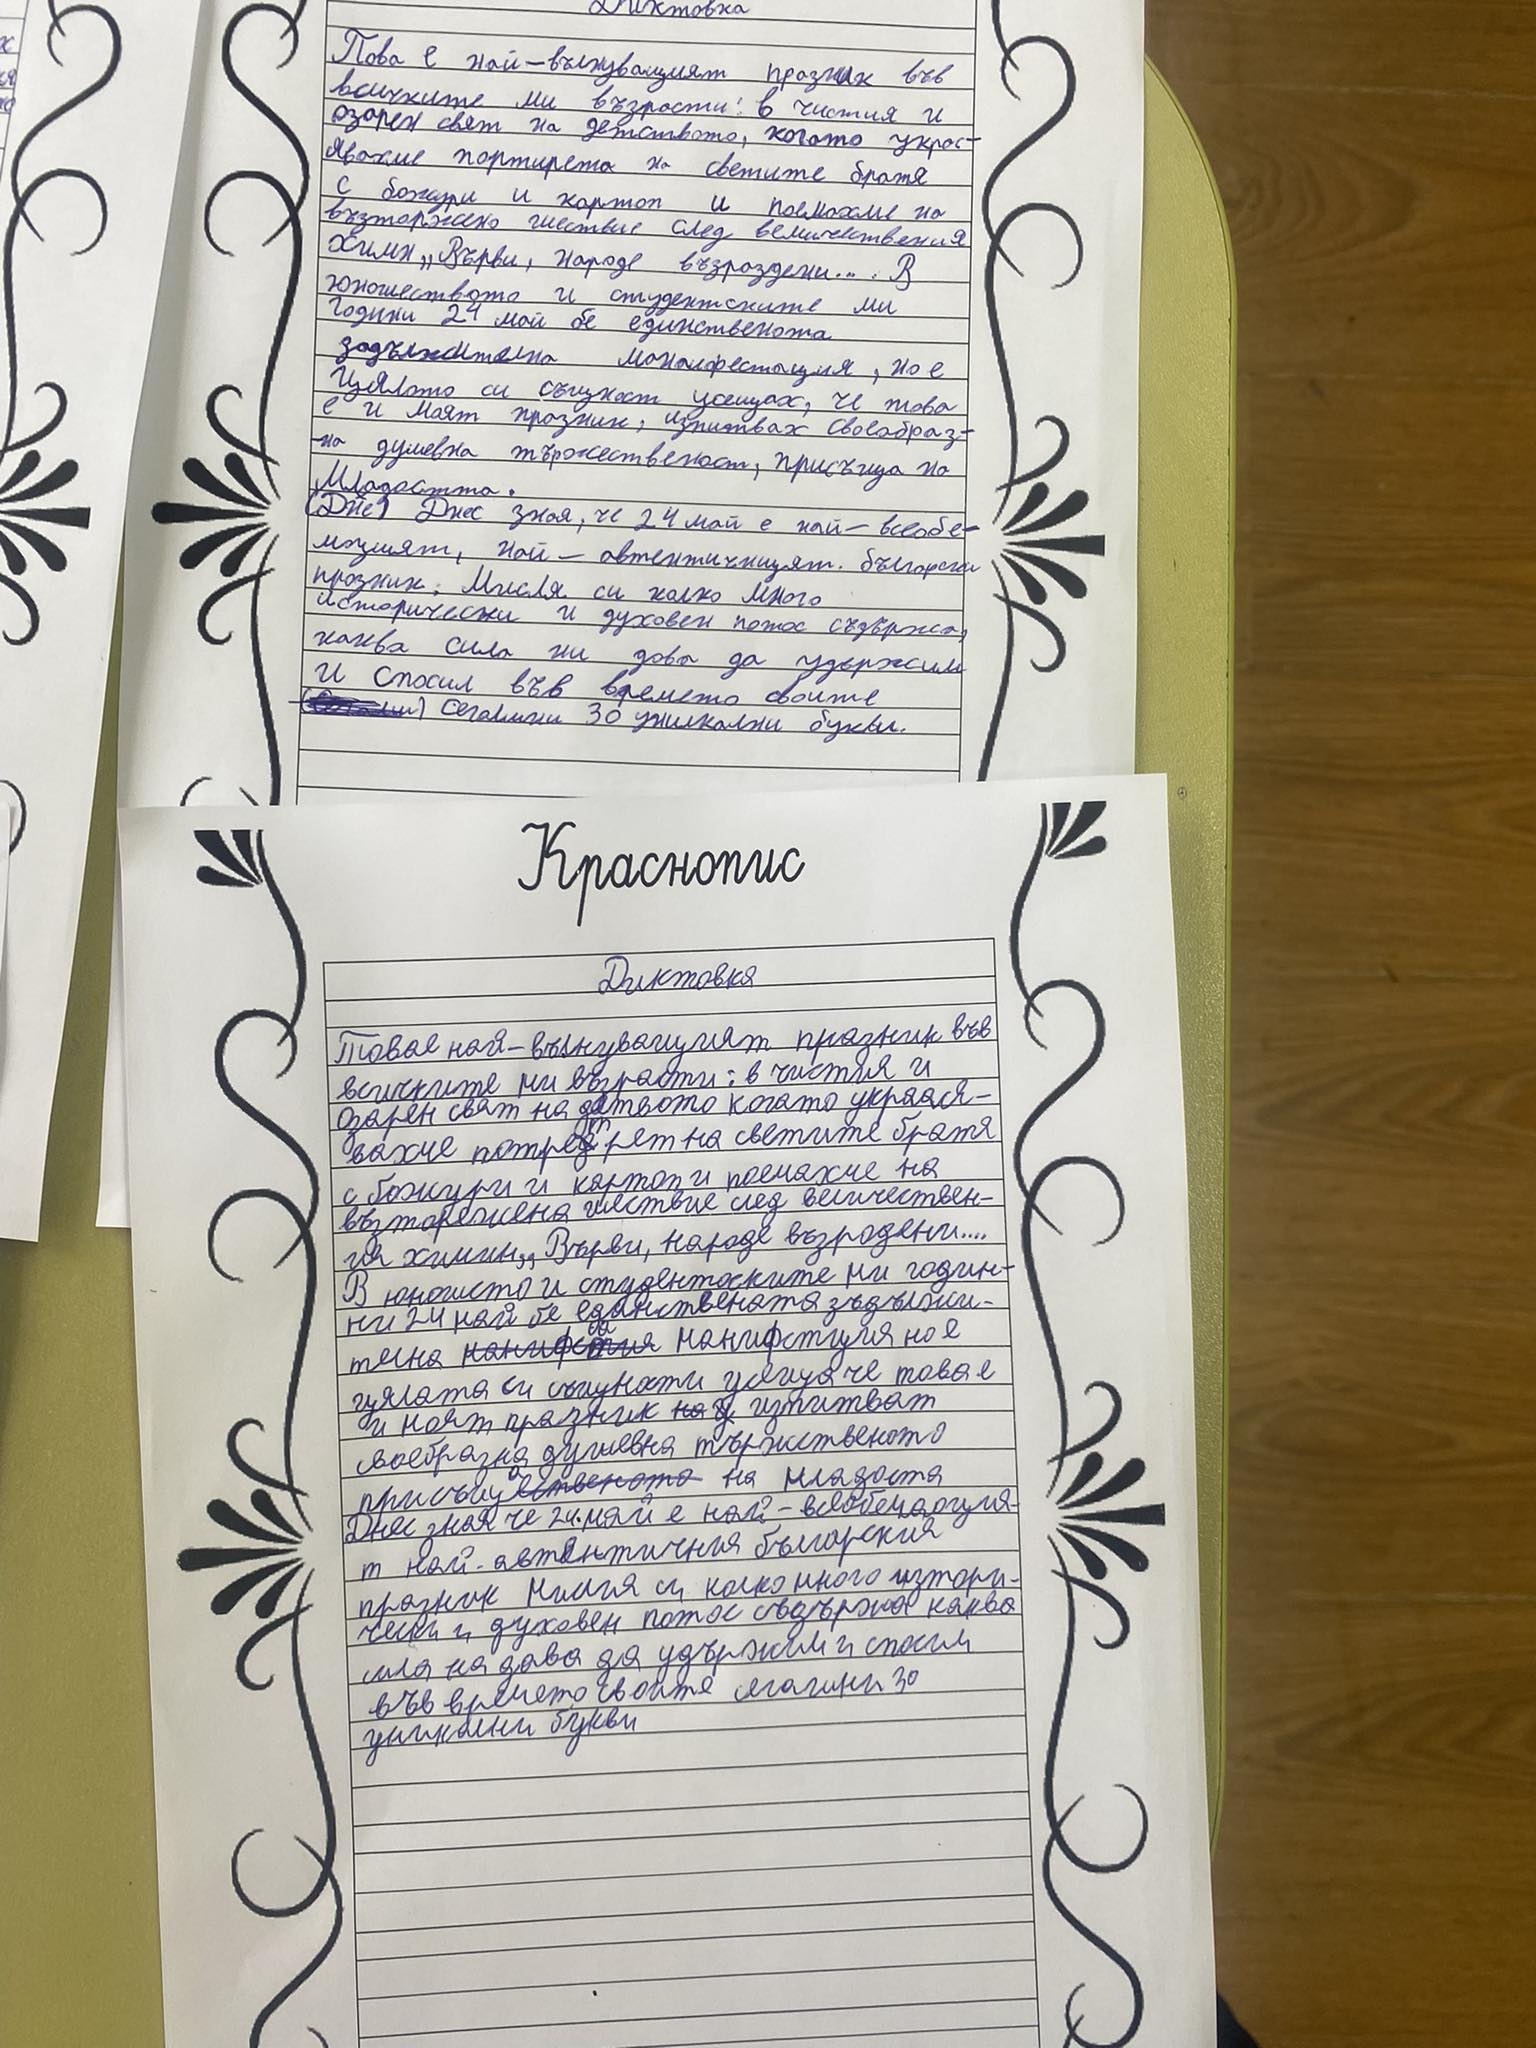 Диктовка
Това е най-вълнуващият празник във
всичките ми възрасти: в чистия и
озарен свят на детството, когато украс-
явахме портирета на светите братя
с божури и картоп и поемахме на
възторжено шествие след величествения
Химн „Върви, народе възраздени... . В
юношеството и студентските ми
години 24 май бе единствената
задължителна манифестация, но е
цялато си същност усещах, че това
е и моят празник, изпитвах своеобраз-
-на душевна тържественост, присъща на
младостта.
(Дне) Днес зная, че 24 май е най-всеобе-
мащият, най-автентичният. български
празник. Мисля си колко много
исторически и духовен потос съдържа,
каква сила ни дава да удържим
и спасим във времето своите
сегашни 30 уникални букви.
Краснопис
Диктовка
Товае най-вълнуващият празник във
всичките ми възрасти: в чистия и
озарен сват на детвото когато украася-
вахме потрет рет на светите братя
с божури и картоп и поемахме на
възторежена шествие след величествен-
ия химин,, Върви, народе възродени....
В юношсто и студентоските ми годин-
ни 24 май бе единствената зъдължи-
телна манифстция но е
цялата си същности усеща че товае
и моят празник изпитват
своебразна душевна тържственото
присъща на младоста
Днес зная че 24.май е най-всеобемащия-
т най-автентичния българския
празник мисля си колко много изтори-
чески и духовен потос съдържа каква
сила на дава да удържим и спасим
във времето своите сегашни 30
уникални букви